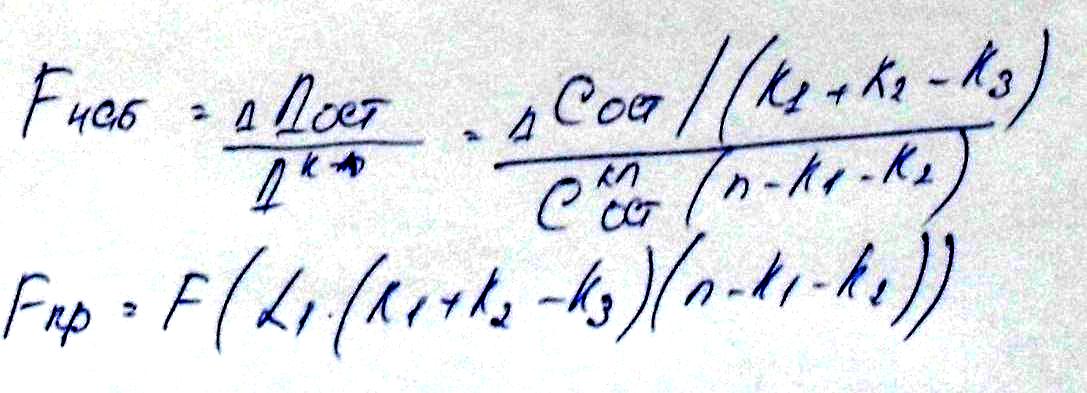 Fнаб = ΔДост / Д^кп = ΔСост / (k1 + k2 - k3) / С^кп ост (n - k1 - k2)
Fкр = F(α1 · (k1 + k2 - k3)(n - k1 - k2))